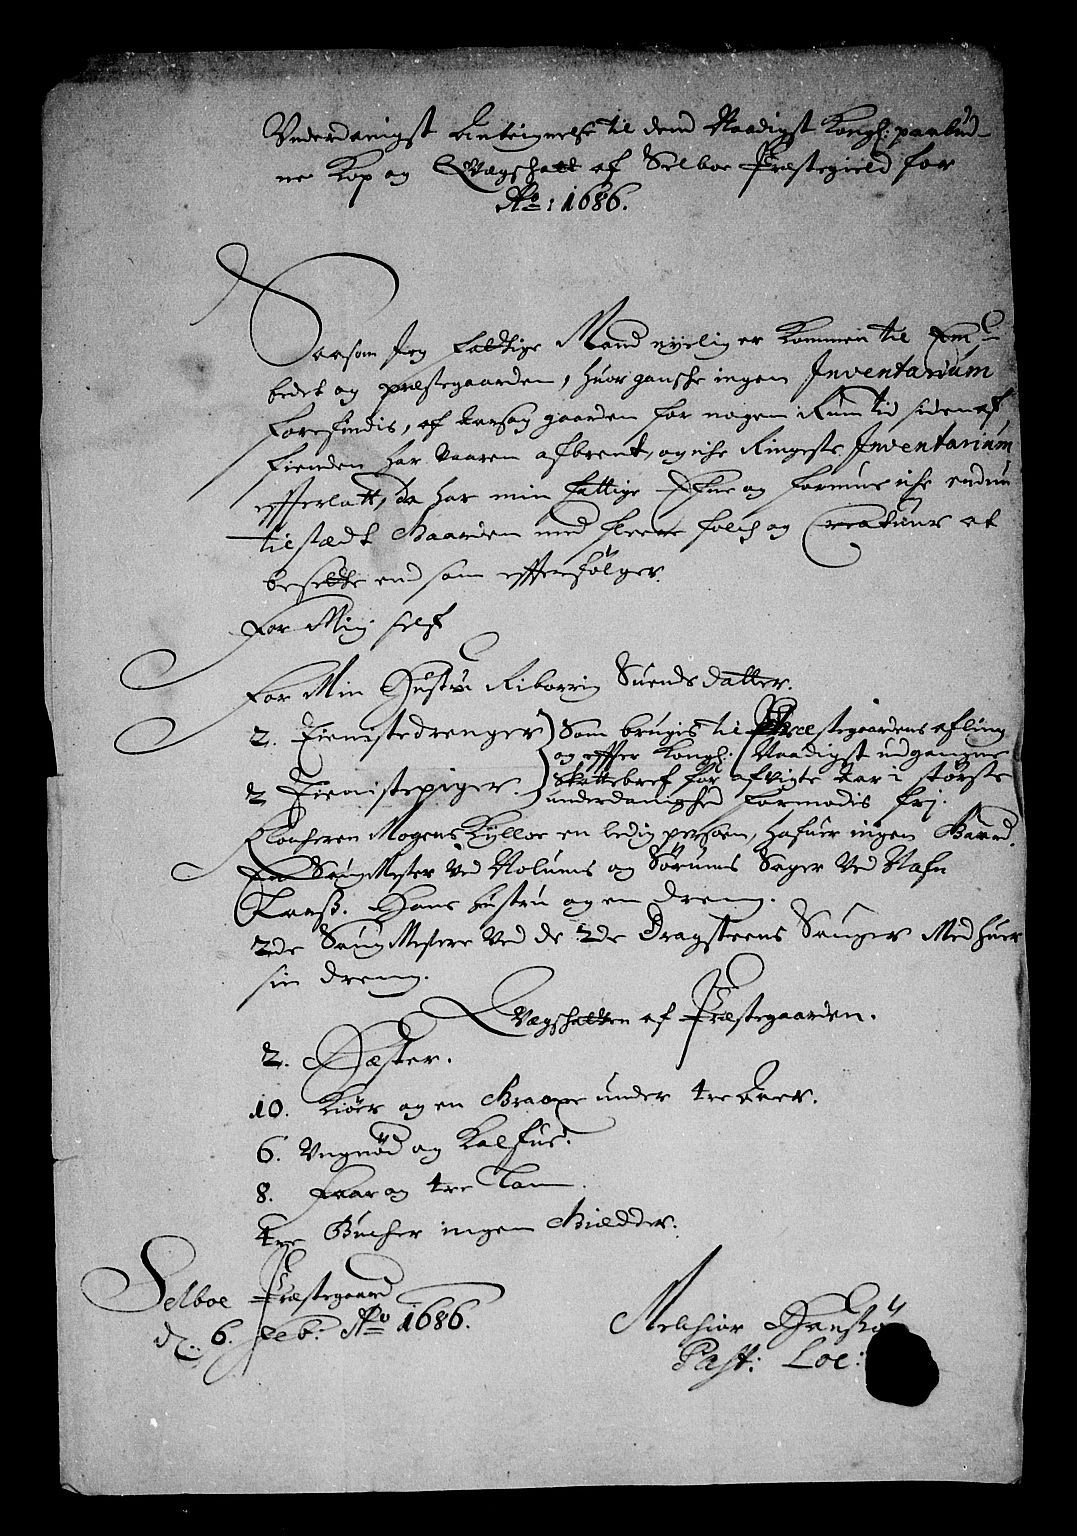 Underdanigst Anteignelse til dend Naadigst Kongl: paabud-
ne Kop og Qvægskatt af Selboe Præstegield for
Ao: 1686.
Saasom Jeg fattige Mand nyelig er Kommen til Em-
bedet og præstegaarden, huor gansche ingen Inventarium
forefindis, af aarsag gaarden for nogen Rum tid siden af
fienden har vaaren afbrent, og iche Ringeste Inventarium
efferlatt, da har min fattige Efne og formue iche endnu
tilstædt Gaarden med fleere folch og Creaturer at
besette end som effterfølger.
For Mig self
For Min Hustru Riborrig Suends datter.
2. Tienistedrenger
Som brugis til Præstegaardens afling
og effter Kongl: Naadigst udgangne
2 Tienistepiger.
Skattebref for afvigte aar i største
underdanighed formodis frj.
Klocheren Mogens Kylloe en ledig person, hafuer ingen Gaard.
En SaugMester ved Nolums og Sørums Sager ved Nafn
Larss. Hans hustru og en dreng.
2de Saug Mestere ved de 2de Dragsteens Sauger Med huer
sin dreng.
Qvægskatten af Præstegaarden.
2. Hæster.
10. Kiøer og en Graape under tre aar.
6. Ungnød og Kalfue.
8. Faar og tre Lam.
tre Bucher ingen Giædder.
Selboe Præstegaard
d. 6. Feb: Ao 1686.
Melchior
Past: Loc: